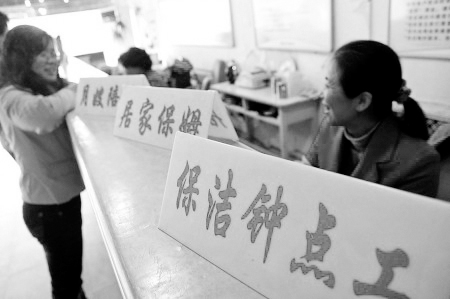 月嫂陪
居家保姆
保洁钟点工